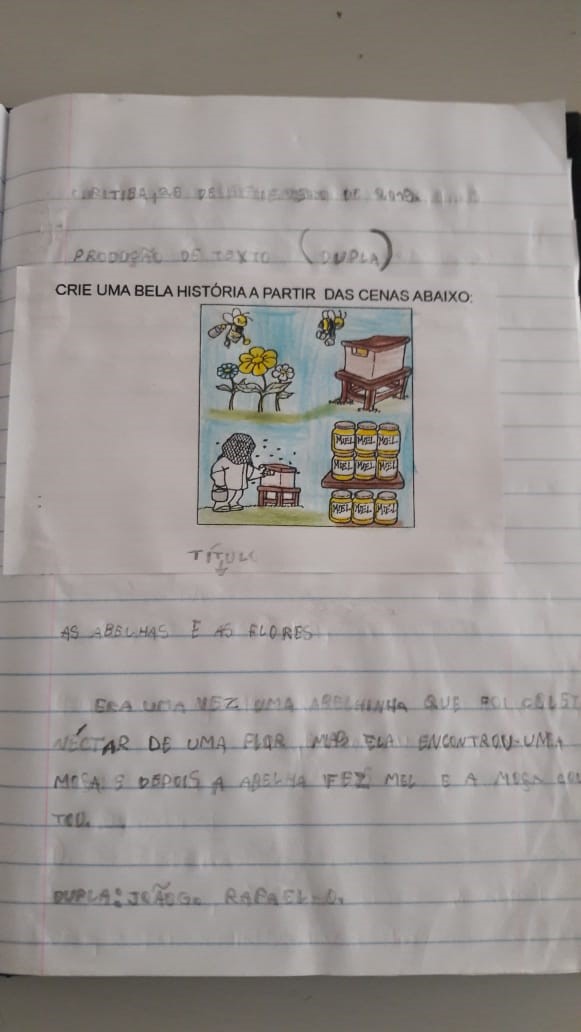 CURITIBA, DE DE
PRODUÇÃO DE TEXTO (DUPLA)
CRIE UMA BELA HISTÓRIA A PARTIR DAS CENAS ABAIXO:
MEL MEL MEL
MEL MEL MEL
MEL MEL MEL
TÍTULO
AS ABELHAS E AS FLORES
ERA UMA VEZ UMA ABELHINHA QUE FOI
NÉCTAR DE UMA FLOR, MAS ELA ENCONTROU UMA
MOÇA E DEPOIS A ABELHA FEZ MEL E A MOÇA
TOU.
DUPLA: JOÃO G. RAFAEL O.